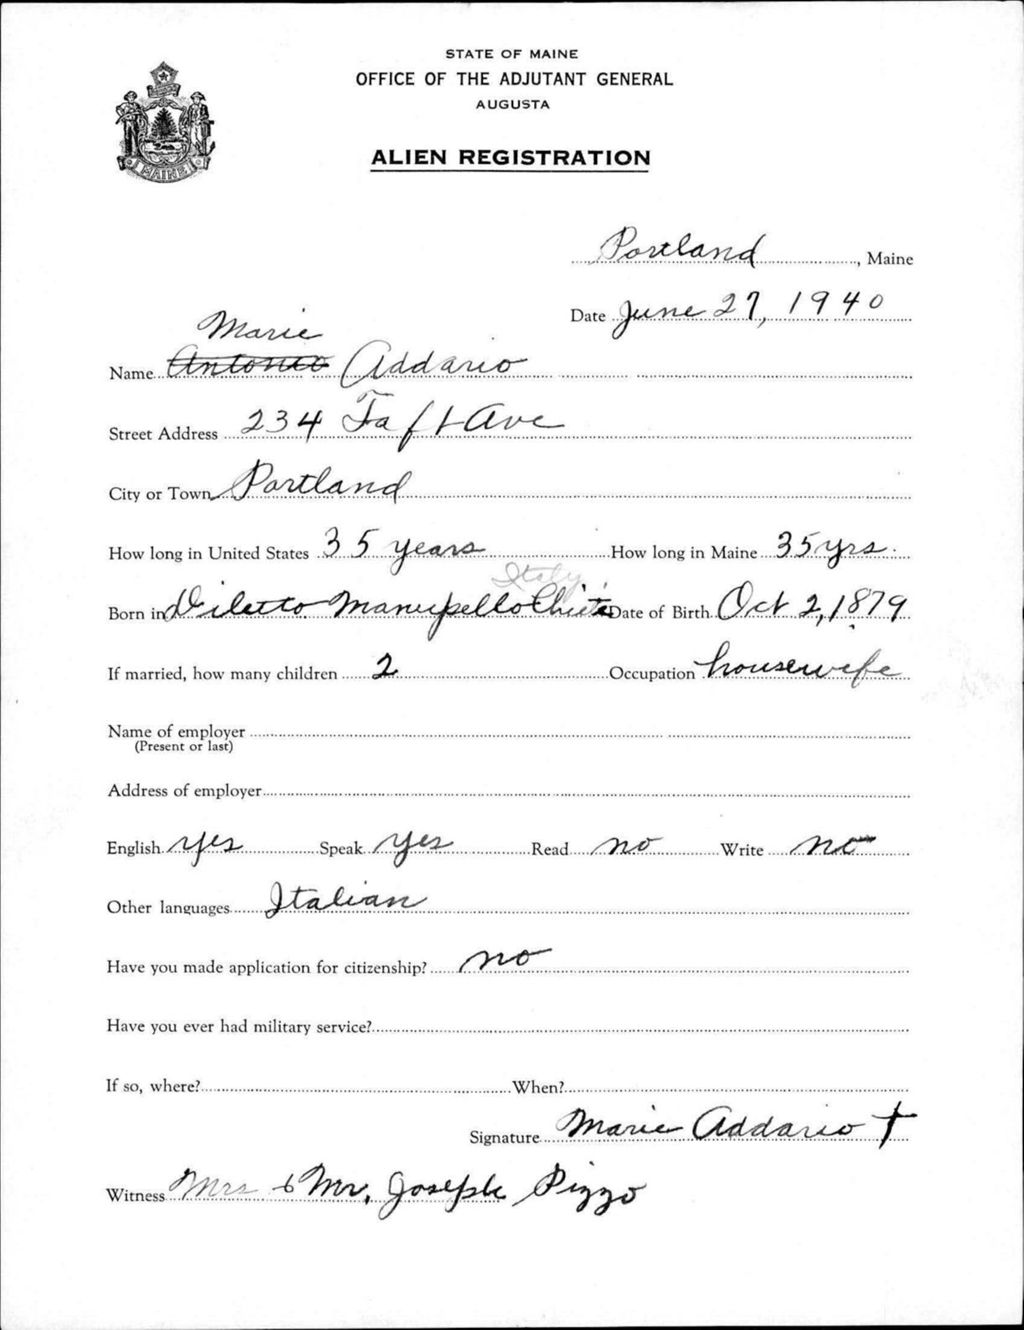 STATE OF MAINE
OFFICE OF THE ADJUTANT GENERAL
AUGUSTA
ALIEN REGISTRATION
MAINE
Portland, Maine
Date June 27, 1940
Marie
Name Antonio Addario
Street Address 234 Taft Ave
City or Town Portland
How long in United States 35 years How long in Maine 35 yrs.
Italy
Born in Diletto Manuppello Chieti Date of Birth Oct 2, 1879
If married, how many children 2 Occupation housewife
Name of employer
(Present or last)
Address of employer
English yes Speak yes Read no Write no
Other languages Italian
Have you made application for citizenship? no
Have you ever had military service?
If so, where? When?
Signature Marie Addario †
Witness Mrs & Mr. Joseph Pizzo